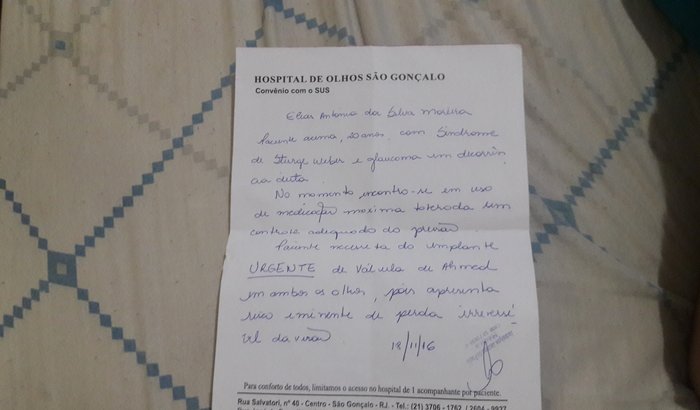 HOSPITAL DE OLHOS SÃO GONÇALO
Convênio com o SUS
Elias Antonio da Silva Moreira
Paciente acima, 20 anos, com Síndrome
de Sturge Weber e glaucoma em decorrên
cia desta.
No momento encontra-se em uso
de medicação maxima tolerada sem
controle adequado da pressão.
Paciente necessita do implante
URGENTE de Válvula de Ahmed
em ambos os olhos, pois apresenta
risco eminente de perda irreversí
vel da visão
18/11/16
Para conforto de todos, limitamos o acesso no hospital de 1 acompanhante por paciente.
Rua Salvatori, nº 40 - Centro - São Gonçalo - RJ. - Tel.: (21) 3706 - 1762 / 2604 - 9937